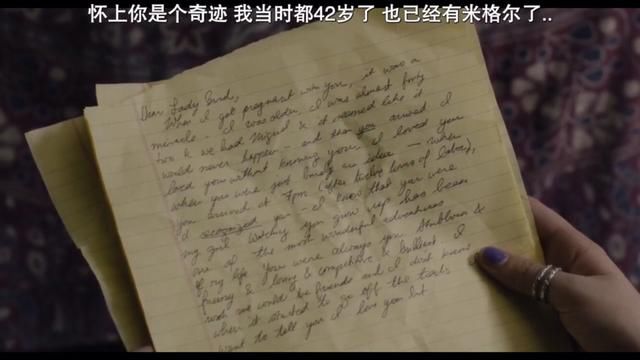 怀上你是个奇迹 我当时都42岁了 也已经有米格尔了..
Dear Lady Bird,
When I got pregnant with you, it was a
miracle - I was older, I was almost forty
two & we had Miguel & it seemed like it
would never happen - and then you arrived. I
loved you without knowing you. I loved you
when you were just an idea — when
you arrived at 7pm (after twelve hours of labor),
I'd recognized you - I knew that you were
my girl. Watching you grow up has been
one of the most wonderful adventures
of my life. You were always you. Stubborn &
funny & loving & competitive & brilliant. I
wish we could be friends and I don't know
when it started to go off the tracks
want to tell you I love you but